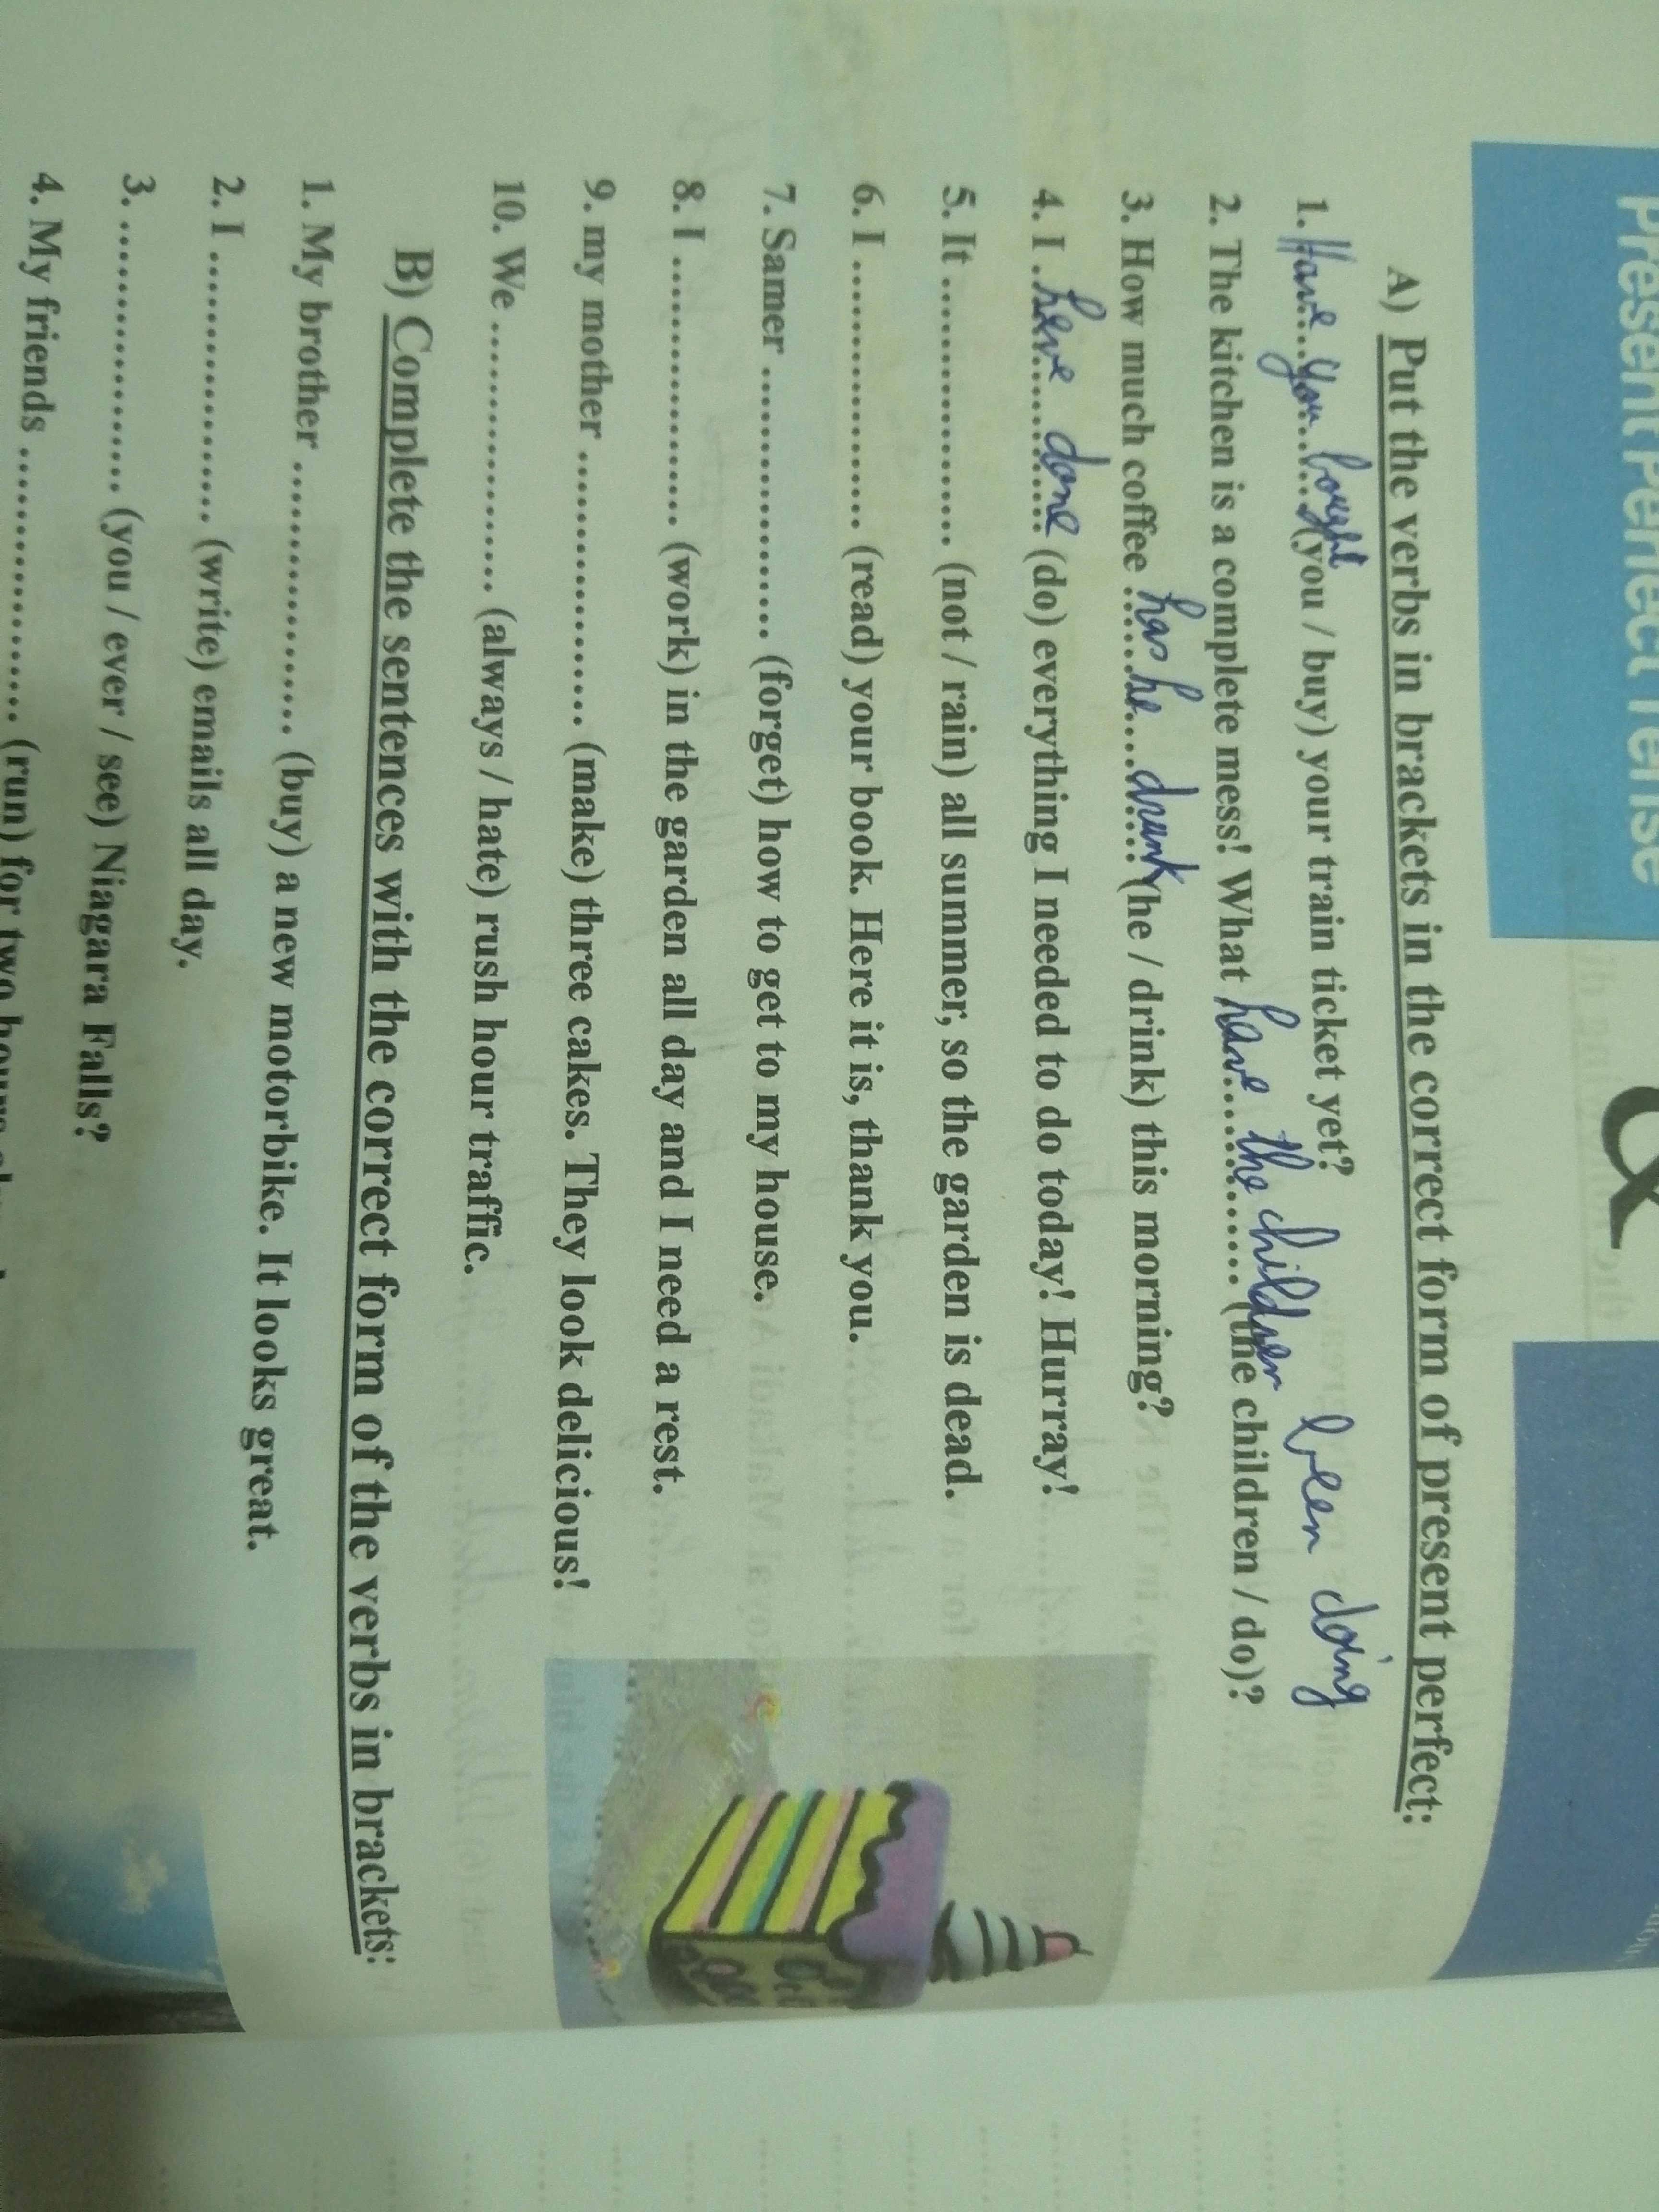 Present Perfect Tense
&
A) Put the verbs in brackets in the correct form of present perfect:
1. Have you bought (you / buy) your train ticket yet?
been doing
2. The kitchen is a complete mess! What have the children (the children / do)?
3. How much coffee has he drunk (he / drink) this morning?
4. I have done (do) everything I needed to do today! Hurray!
5. It .................. (not / rain) all summer, so the garden is dead.
6. I .................. (read) your book. Here it is, thank you.
7. Samer .................. (forget) how to get to my house.
8. I .................. (work) in the garden all day and I need a rest.
9. my mother .................. (make) three cakes. They look delicious!
10. We .................. (always / hate) rush hour traffic.
B) Complete the sentences with the correct form of the verbs in brackets:
1. My brother .................. (buy) a new motorbike. It looks great.
2. I .................. (write) emails all day.
3. .................. (you / ever / see) Niagara Falls?
4. My friends .................. (run) for two hours